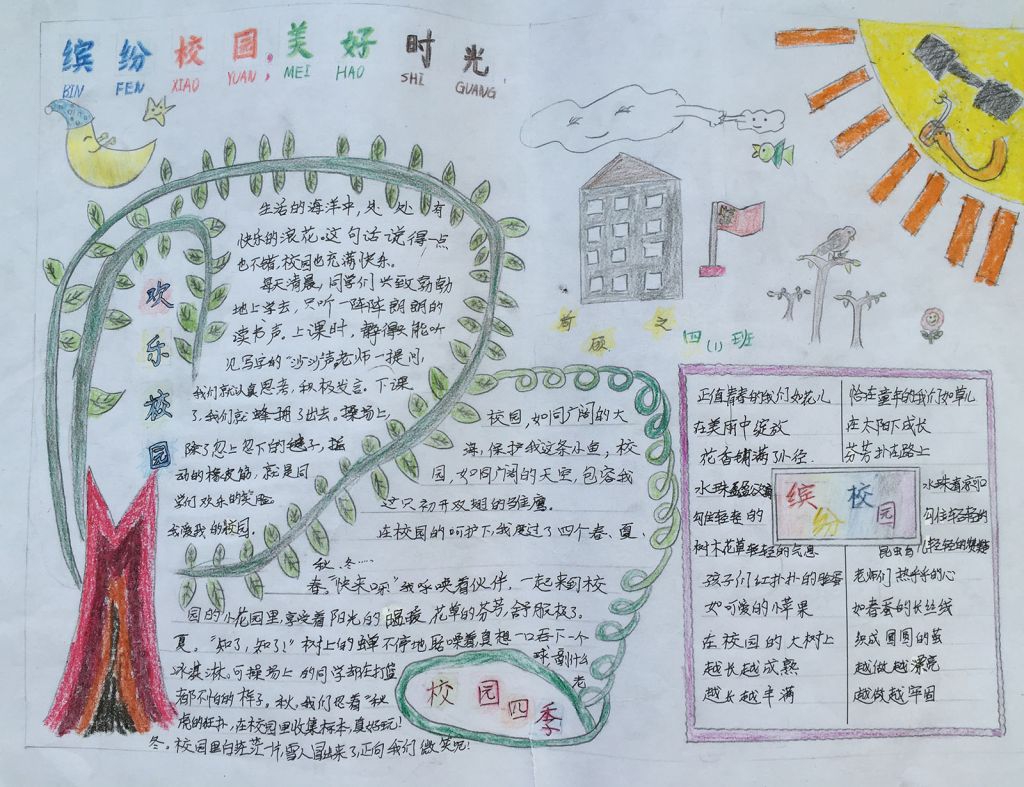 缤纷校园,美好时光
BIN FEN XIAO YUAN, MEI HAO SHI GUANG
欢乐校园
生活的海洋中,处处有
快乐的浪花。这句话说得一点
也不错,校园也充满快乐。
每天清晨,同学们兴致勃勃
地上学去,只听一阵阵朗朗的
读书声。上课时,静得只能听
见写字的“沙沙”声,老师一提问,
我们就认真思考,积极发言。下课
了,我们就蜂拥了出去。操场上,
除了忽上忽下的毽子,摇
动的橡皮筋,就是同
学们欢乐的笑脸
我爱我的校园。
校园,如同广阔的大
海,保护我这条小鱼,校
园,如同广阔的天空,包容我
这只初开双翅的雏鹰。
在校园的呵护下,我度过了四个春、夏、
秋、冬……
春,“快来呀”我呼唤着伙伴,一起来到校
园的小花园里,享受着阳光的温暖,花草的芬芳,舒服极了。
夏,“知了,知了!”树上的蝉不停地
真想一口吞下一个
冰淇淋,可操场上的同学都在打篮
球,看什么
都不怕的样子。秋,我们忍着“秋
老
虎的狂扑,在校园里收集标本,真好玩!
冬,校园里白
雪人冒出来了,正向我们微笑呢!
校园四季
四(1)班
正值青春的我们如花儿
在美雨中绽放
花香铺满了小径
水珠
勾住轻轻的
树木花草轻轻的气息
孩子们红扑扑的脸蛋
如可爱的小苹果
在校园的大树上
越长越成熟
越长越丰满
缤纷校园
恰在童年的我们如草儿
在太阳下成长
芬芳扑在路上
水珠清凉可口
勾住轻轻的
老师们热乎乎的心
如春蚕的长丝线
织成圆圆的茧
越做越漂亮
越做越牢固